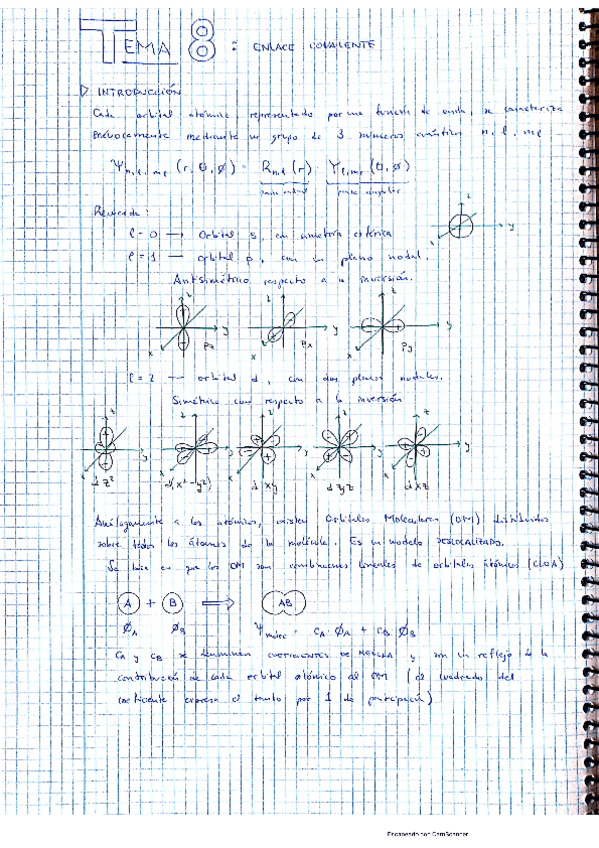 TEMA 8: ENLACE COVALENTE
▷ INTRODUCCIÓN
Cada orbital atómico, representado por una función de onda, se caracteriza
unívocamente mediante un grupo de 3 números cuánticos n, l, ml
Ψn,l,ml (r, θ, ø) = Rn,l (r) · Yl,ml (θ, ø)
parte radial parte angular
Recuerda:
l = 0 → orbital s, con simetría esférica
y
x
l = 1 — orbital p, con un plano nodal.
Antisimétrico respecto a la inversión.
z z z
y y y
x Pz x Px x Py
l = 2 — orbital d, con dos planos nodales.
Simétrico con respecto a la inversión
z z z z z
y y y y y
x dz² x d(x²-y²) x dxy x dyz x dxz
Análogamente a los atómicos, existen Orbitales Moleculares (OM) distribuidos
sobre todos los átomos de la molécula. Es un modelo DESLOCALIZADO.
Se basa en que los OM son combinaciones lineales de orbitales atómicos (CLOA)
A + B ⟹ AB
øA øB Ψmolec = cA · øA + cB øB
cA y cB se denominan COEFICIENTES DE MEZCLA y son un reflejo de la
contribución de cada orbital atómico al OM (el cuadrado del
coeficiente expresa el tanto por 1 de participación)
Escaneado con CamScanner